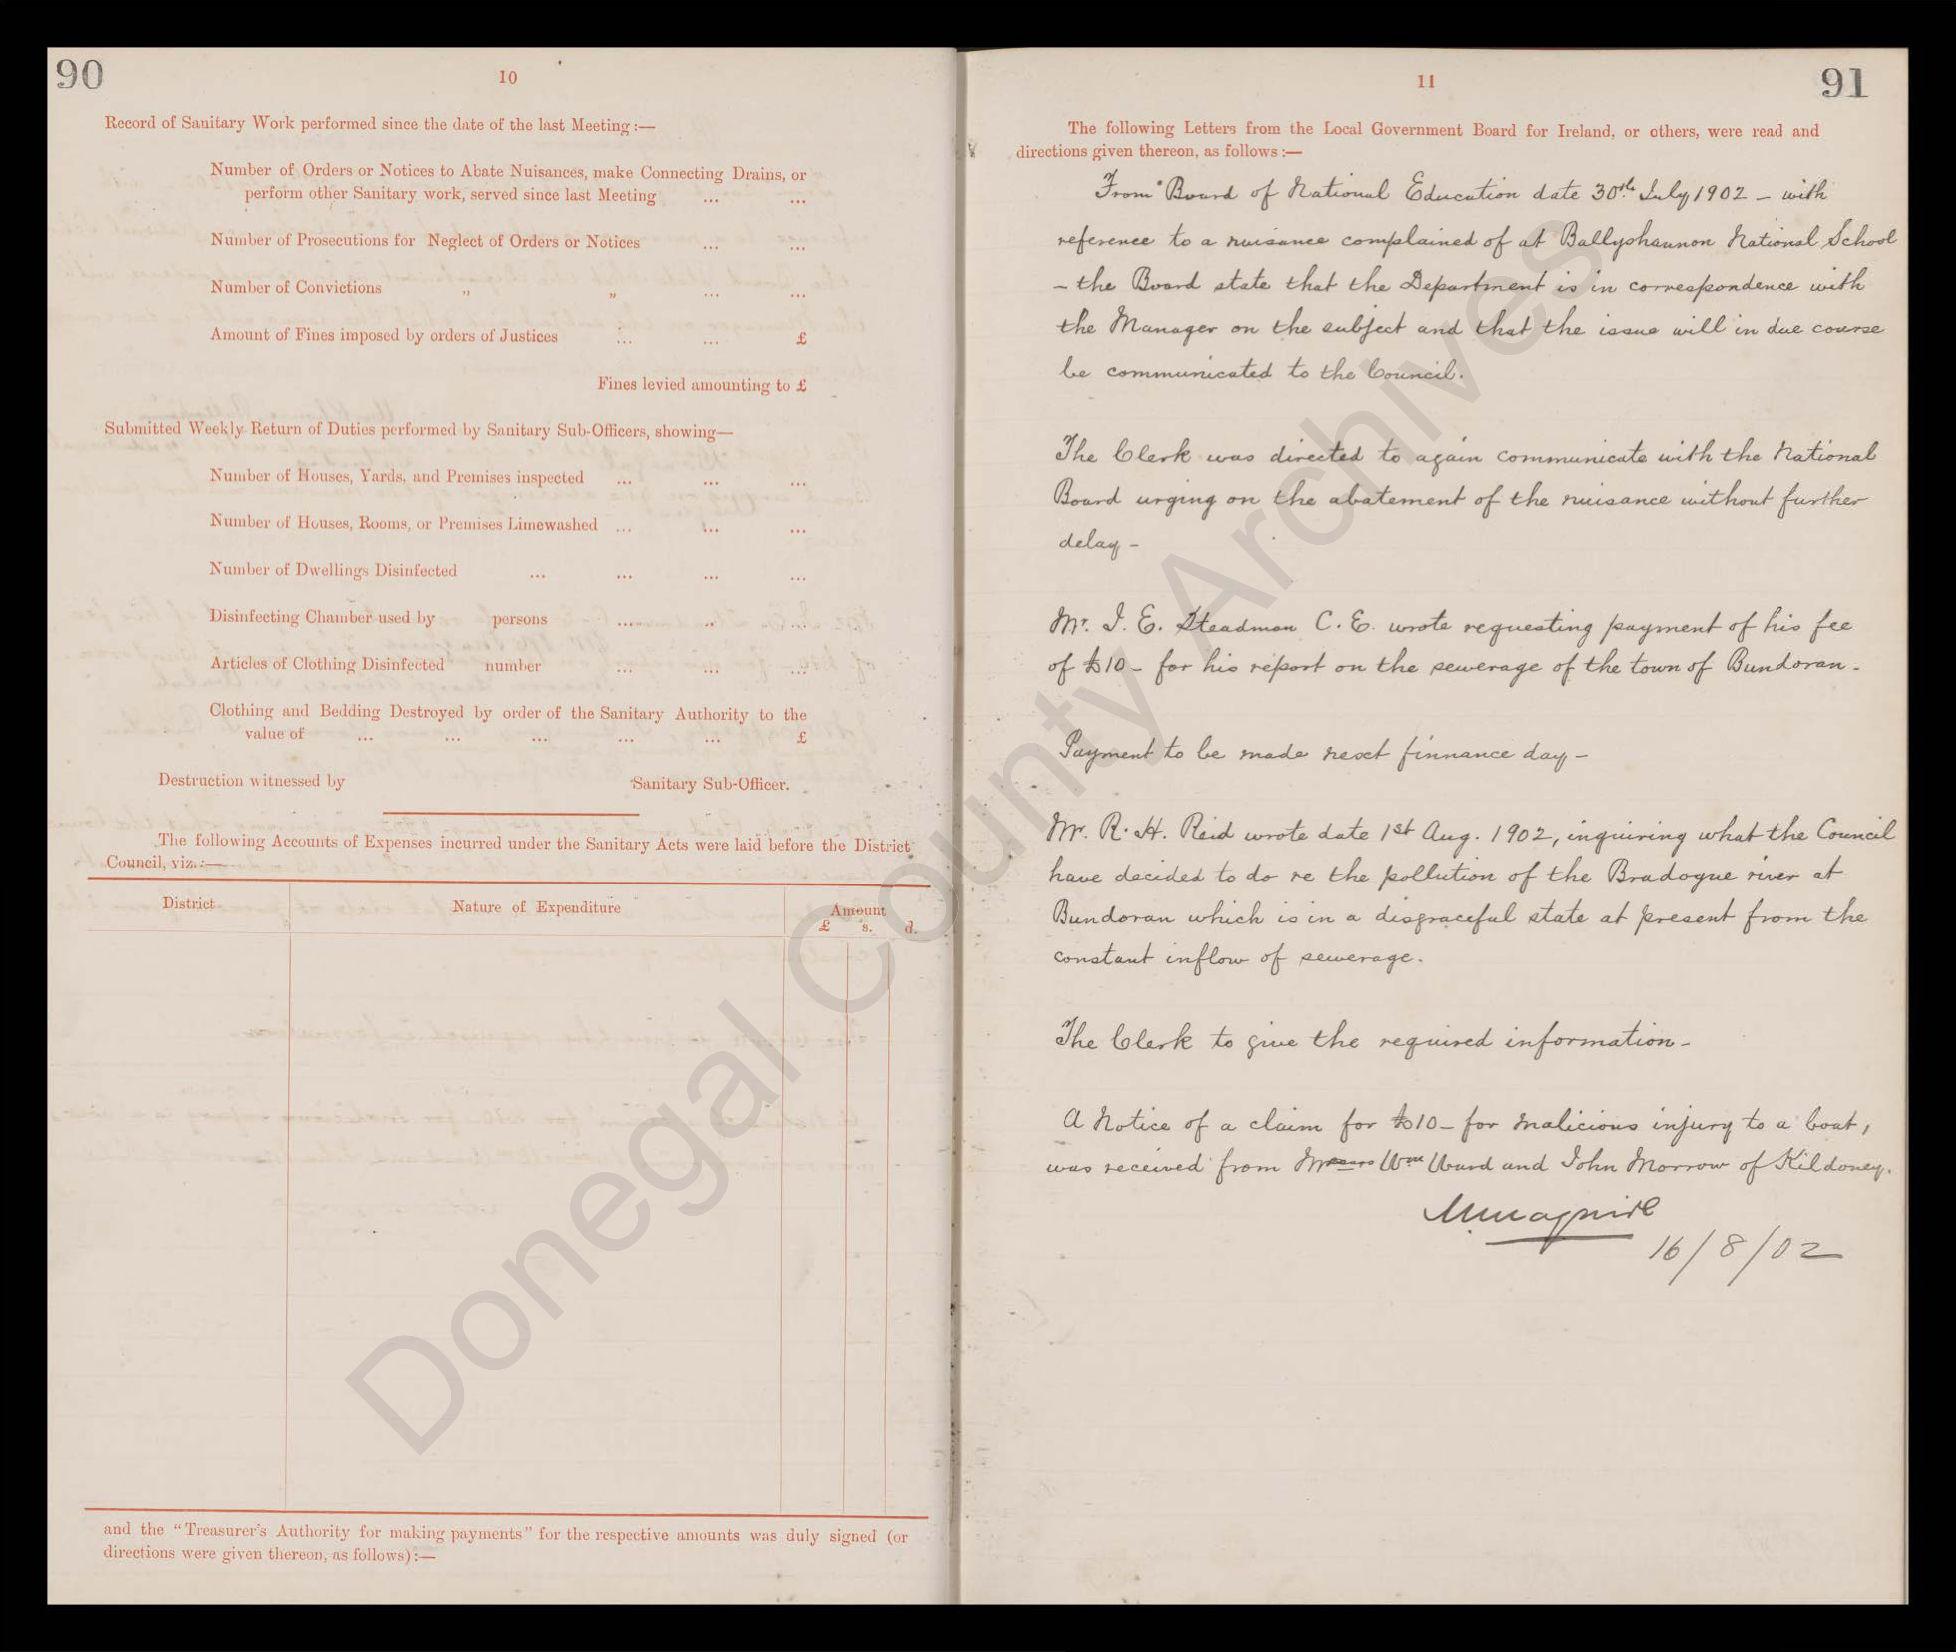 90
10
Record of Sanitary Work performed since the date of the last Meeting :—
Number of Orders or Notices to Abate Nuisances, make Connecting Drains, or
perform other Sanitary work, served since last Meeting ... ...
Number of Prosecutions for Neglect of Orders or Notices ... ...
Number of Convictions „ „ ... ...
Amount of Fines imposed by orders of Justices ... ... £
Fines levied amounting to £
Submitted Weekly Return of Duties performed by Sanitary Sub-Officers, showing—
Number of Houses, Yards, and Premises inspected ... ... ...
Number of Houses, Rooms, or Premises Limewashed ... ... ...
Number of Dwellings Disinfected ... ... ... ...
Disinfecting Chamber used by persons ... ... ...
Articles of Clothing Disinfected number ... ... ...
Clothing and Bedding Destroyed by order of the Sanitary Authority to the
value of ... ... ... ... ... £
Destruction witnessed by Sanitary Sub-Officer.
The following Accounts of Expenses incurred under the Sanitary Acts were laid before the District
Council, viz. :—
District Nature of Expenditure Amount
£ s. d.
and the "Treasurer's Authority for making payments" for the respective amounts was duly signed (or
directions were given thereon, as follows) :—
91
11
The following Letters from the Local Government Board for Ireland, or others, were read and
directions given thereon, as follows :—
From Board of National Education date 30th July 1902 – with
reference to a nuisance complained of at Ballyshannon National School
– the Board state that the Department is in correspondence with
the Manager on the subject and that the issue will in due course
be communicated to the Council.
The Clerk was directed to again communicate with the National
Board urging on the abatement of the nuisance without further
delay –
Mr. J. E. Steadman C. E. wrote requesting payment of his fee
of £10 – for his report on the sewerage of the town of Bundoran –
Payment to be made next finnance day –
Mr. R. H. Reid wrote date 1st Aug. 1902, inquiring what the Council
have decided to do re the pollution of the Bradogue river at
Bundoran which is in a disgraceful state at present from the
constant inflow of sewerage.
The Clerk to give the required information –
A Notice of a claim for £10 – for malicious injury to a boat,
was received from Messrs Wm Ward and John Morrow of Kildoney.
Mmaguire
16/8/02
Donegal County Archives